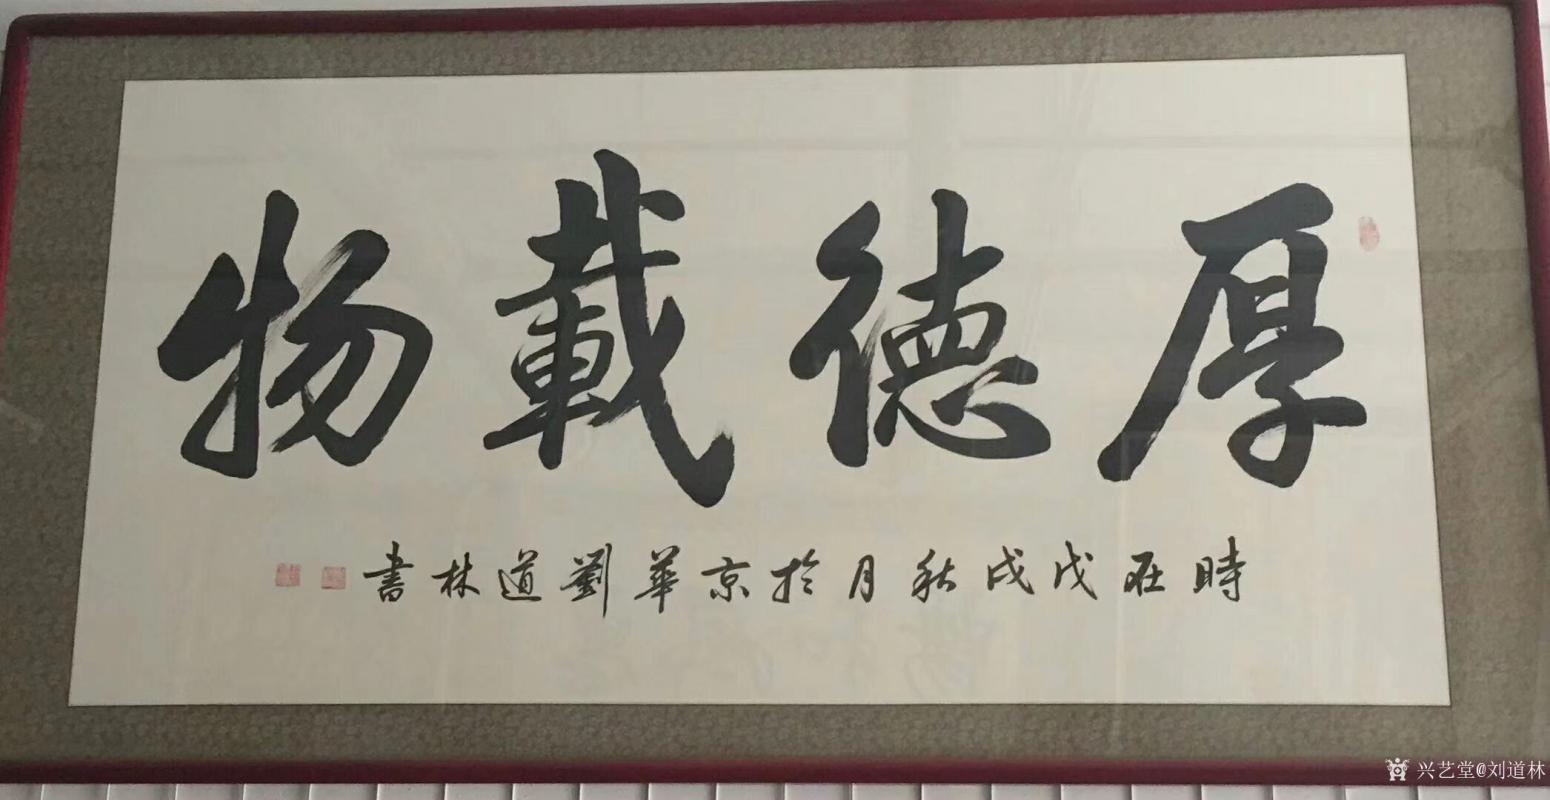 厚德載物
時在戊戌秋月於京華劉道林書
兴艺堂@刘道林